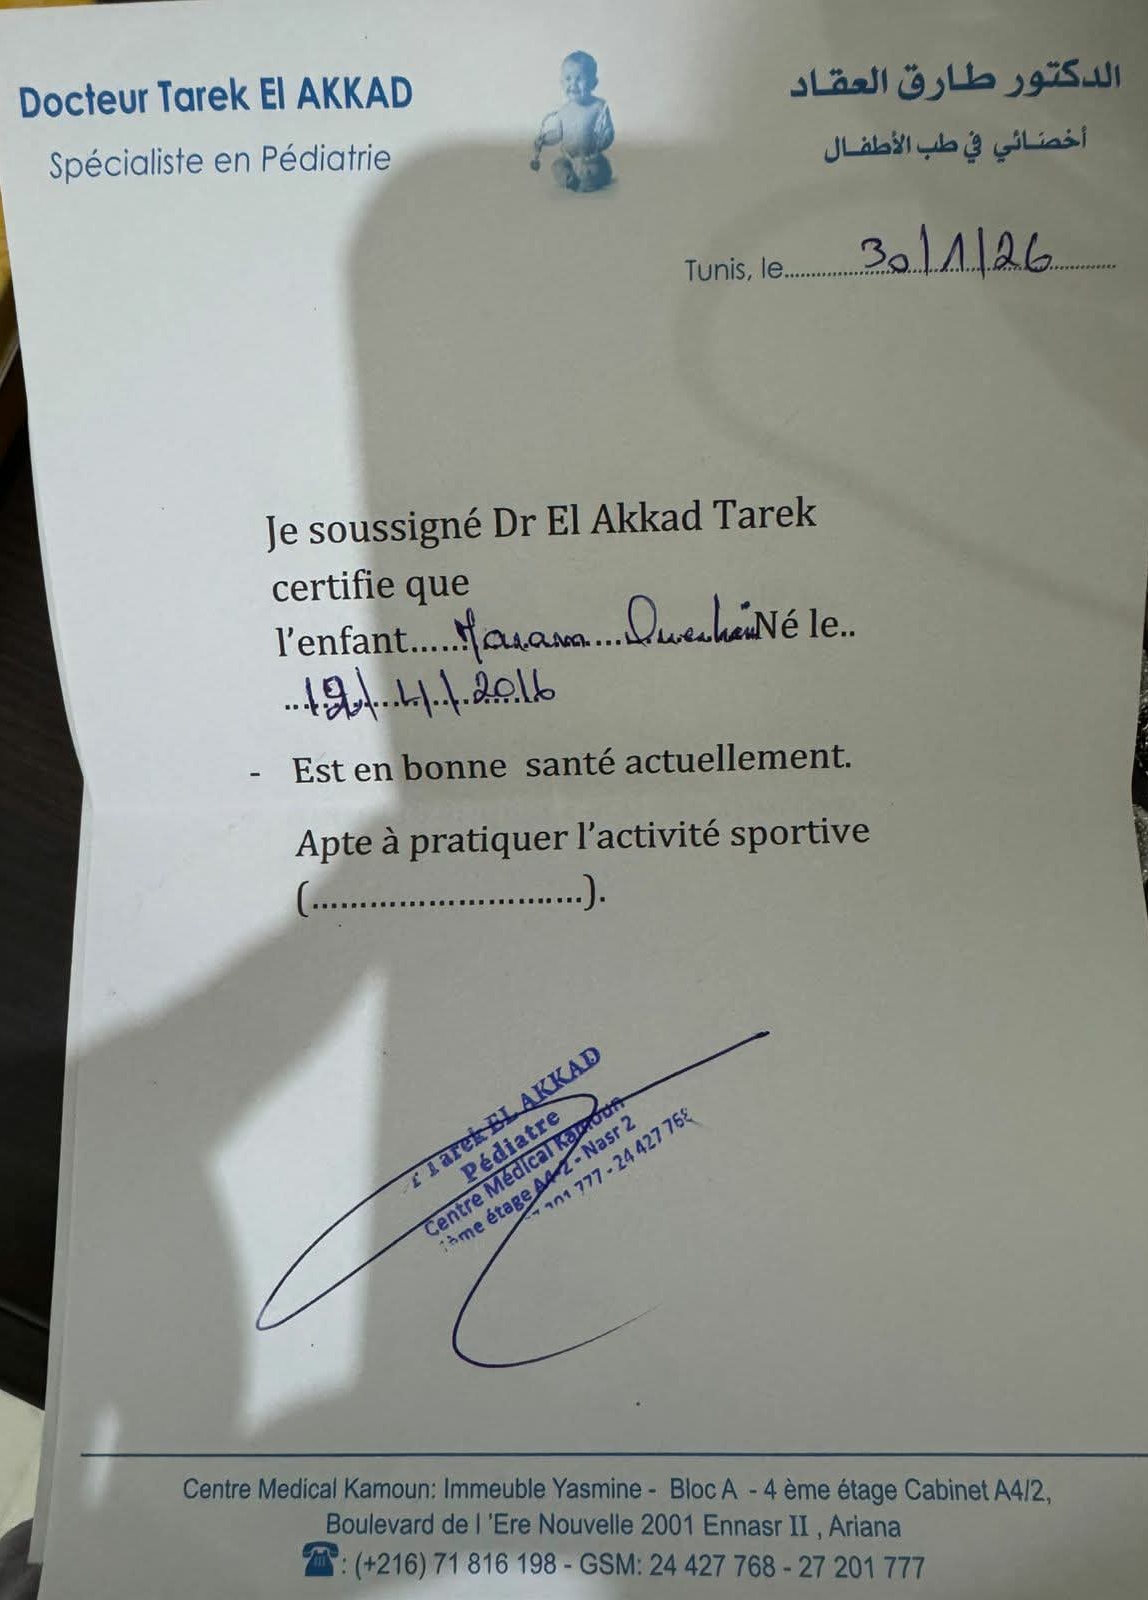 Docteur Tarek El AKKAD
Spécialiste en Pédiatrie
الدكتور طارق العقاد
أخصائي في طب الأطفال
Tunis, le.....30/1/26.....
Je soussigné Dr El Akkad Tarek
certifie que
l'enfant......Maram.... Né le..
...19/.4/.2016
- Est en bonne santé actuellement.
Apte à pratiquer l'activité sportive
(.............................).
Tarek EL AKKAD
Pédiatre
Centre Médical Kamoun
ème étage A4-2 - Nasr 2
777 - 24 427 768
Centre Medical Kamoun: Immeuble Yasmine - Bloc A - 4 ème étage Cabinet A4/2,
Boulevard de l 'Ere Nouvelle 2001 Ennasr II , Ariana
: (+216) 71 816 198 - GSM: 24 427 768 - 27 201 777